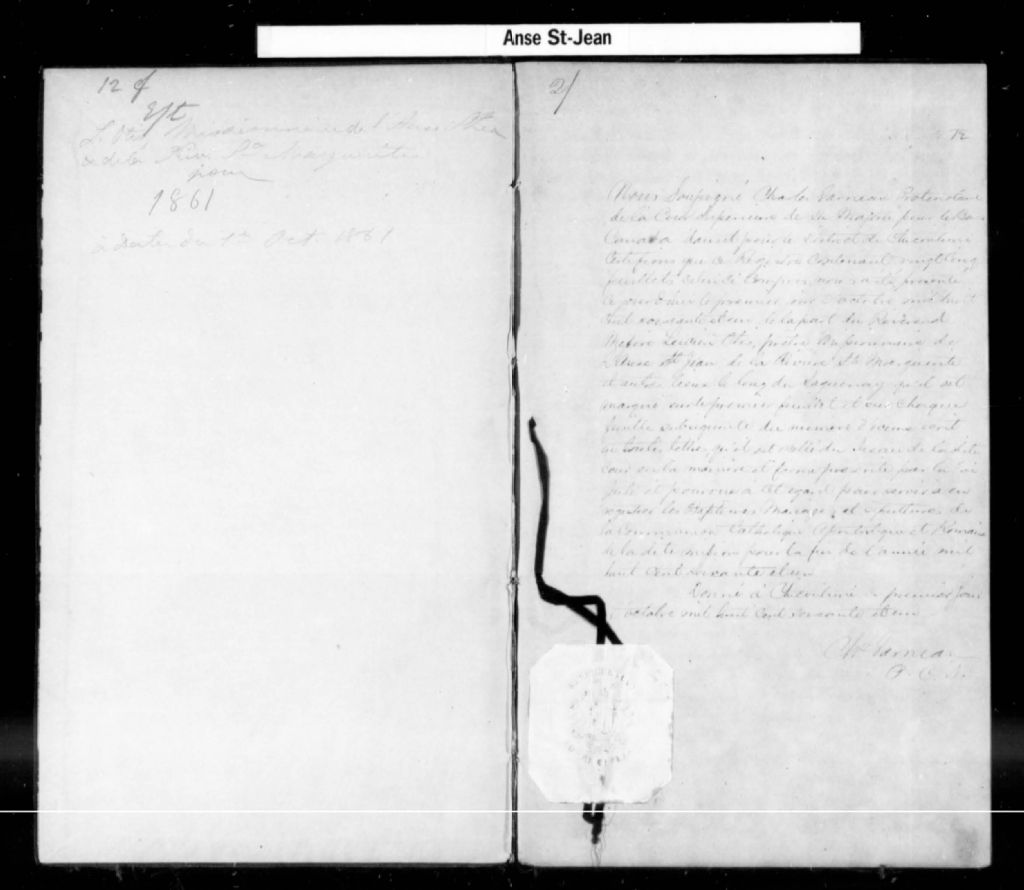 Anse St-Jean
12 f
Ext
L. Otis Missionnaire de l'Anse St Jean
& de la Riv. Ste Marguerite
pour
1861
à dater du 1er Oct. 1861
2/
12
Nous Soussigné Charles Garneau Protonotaire
de la Cour Supérieure de Sa Majesté pour le Bas
Canada dans et pour le District de Chicoutimi
Certifions que ce Régistre Contenant vingt cinq
feuillets celui-ci compris nous a été présenté
ce jourd'hui le premier jour d'octobre mil huit
cent soixante et un de la part du Révérend
Messire Lucien Otis, prêtre Missionnaire de
L'Anse St Jean de la Rivière Ste Marguerite
et autres lieux le long du Saguenay qu'il est
marqué sur le premier feuillet et sur chaque
feuillet subséquent du numéro d'icelui écrit
en toutes lettres, qu'il est scellé du sceau de la dite
cour en la manière et forme prescrite par la loi
faite et pourvue à cet égard pour servir à en
registrer les Baptêmes Mariages et Sépultures de
la communion Catholique Apostolique et Romaine
de la dite mission pour la fin de l'année mil
huit cent soixante et un
Donné à Chicoutimi ce premier jour
octobre mil huit cent soixante et un
Chs Garneau
P. C. S.